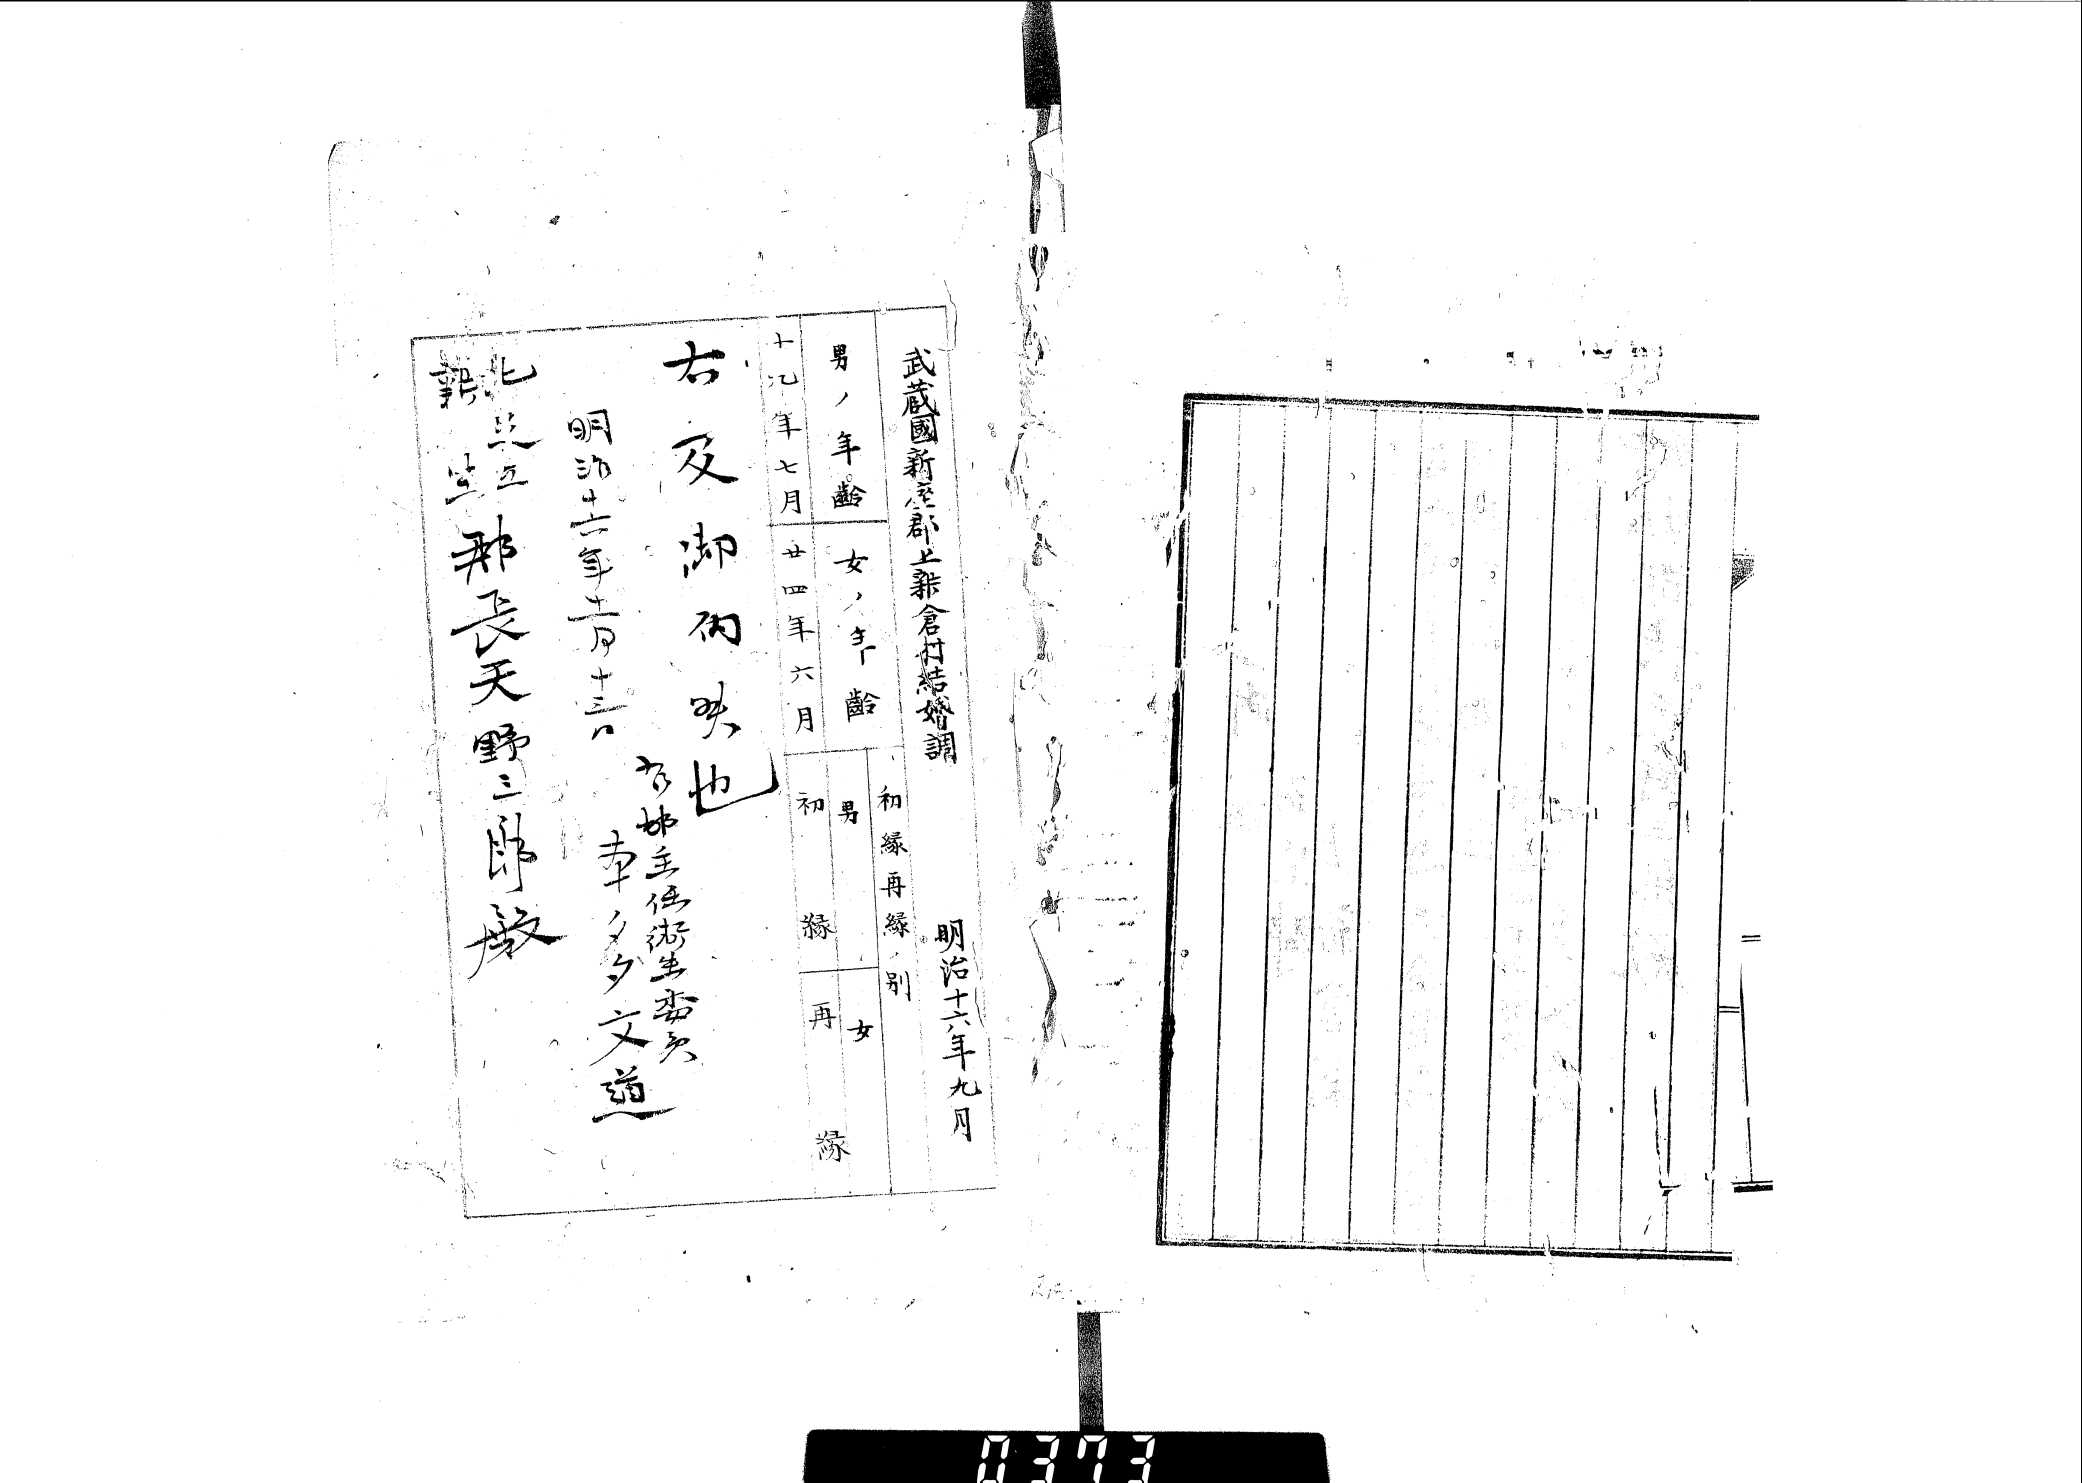 武蔵國新座郡上新倉村結婚調
明治十六年九月
男ノ年齢
女ノ年齢
初縁再縁ノ別
男
女
十九年七月
廿四年六月
初縁
再縁
右及御届候也
明治十六年十一月十三日
右村主任衛生委員
文道
北足立
新坐
郡長天野三郎殿
0373